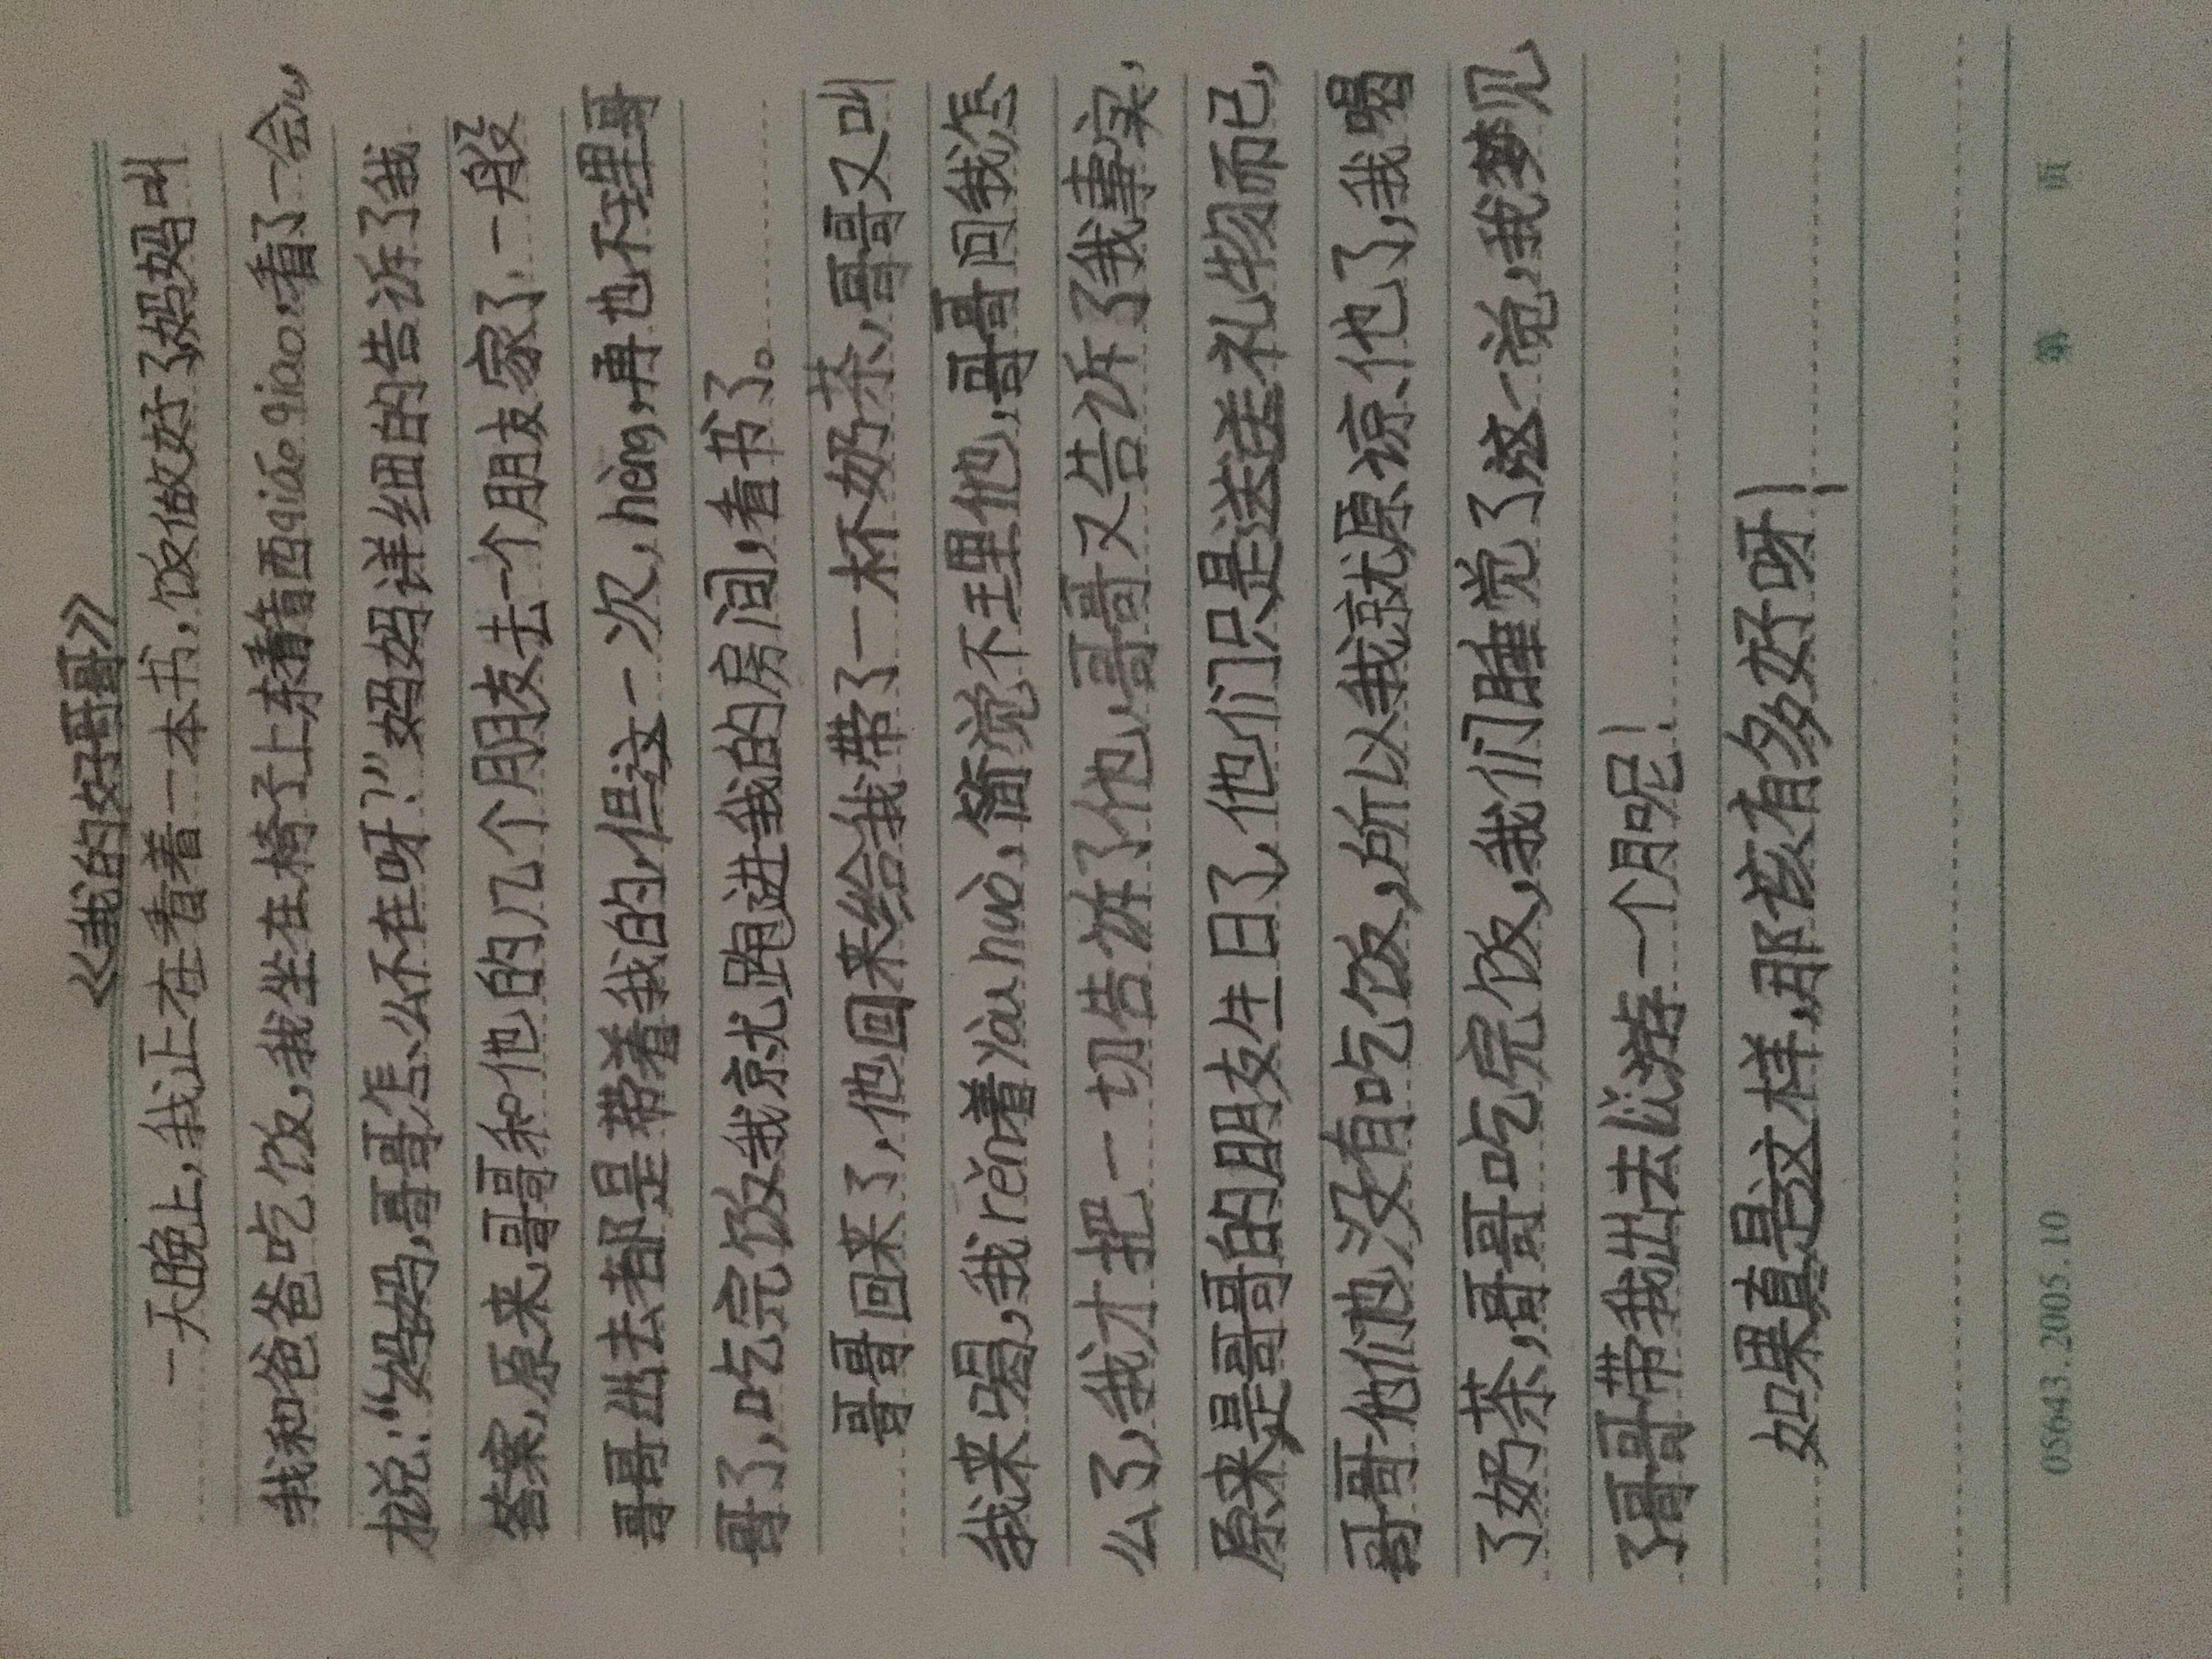 《我的好哥哥》
一天晚上,我正在看着一本书,饭做好了妈妈叫
我和爸爸吃饭,我坐在椅子上东着西qiáo qiao.看了一会,
才说:“妈妈,哥哥怎么不在呀?”妈妈详细的告诉了我
答案,原来,哥哥和他的几个朋友去一个朋友家了,一般
哥哥出去都是带着我的,但这一次,hèng,再也不理哥
哥了,吃完饭我就跑进我的房间,看书了。
哥哥回来了,他回来给我带了一杯奶茶,哥哥又叫
我来喝,我rěn着yòu huò,简觉不理他,哥哥问我怎
么了,我才把一切告诉了他,哥哥又告诉了我事实,
原来是哥哥的朋友生日了,他们只是送送礼物而已,
哥哥他们也没有吃饭,所以我就原谅他了,我喝
了奶茶,哥哥吃完饭,我们睡觉了这一觉,我梦见
了哥哥带我出去lǚ游一个月呢!
如果真是这样,那该有多好呀!
05643.2005.10 第 页